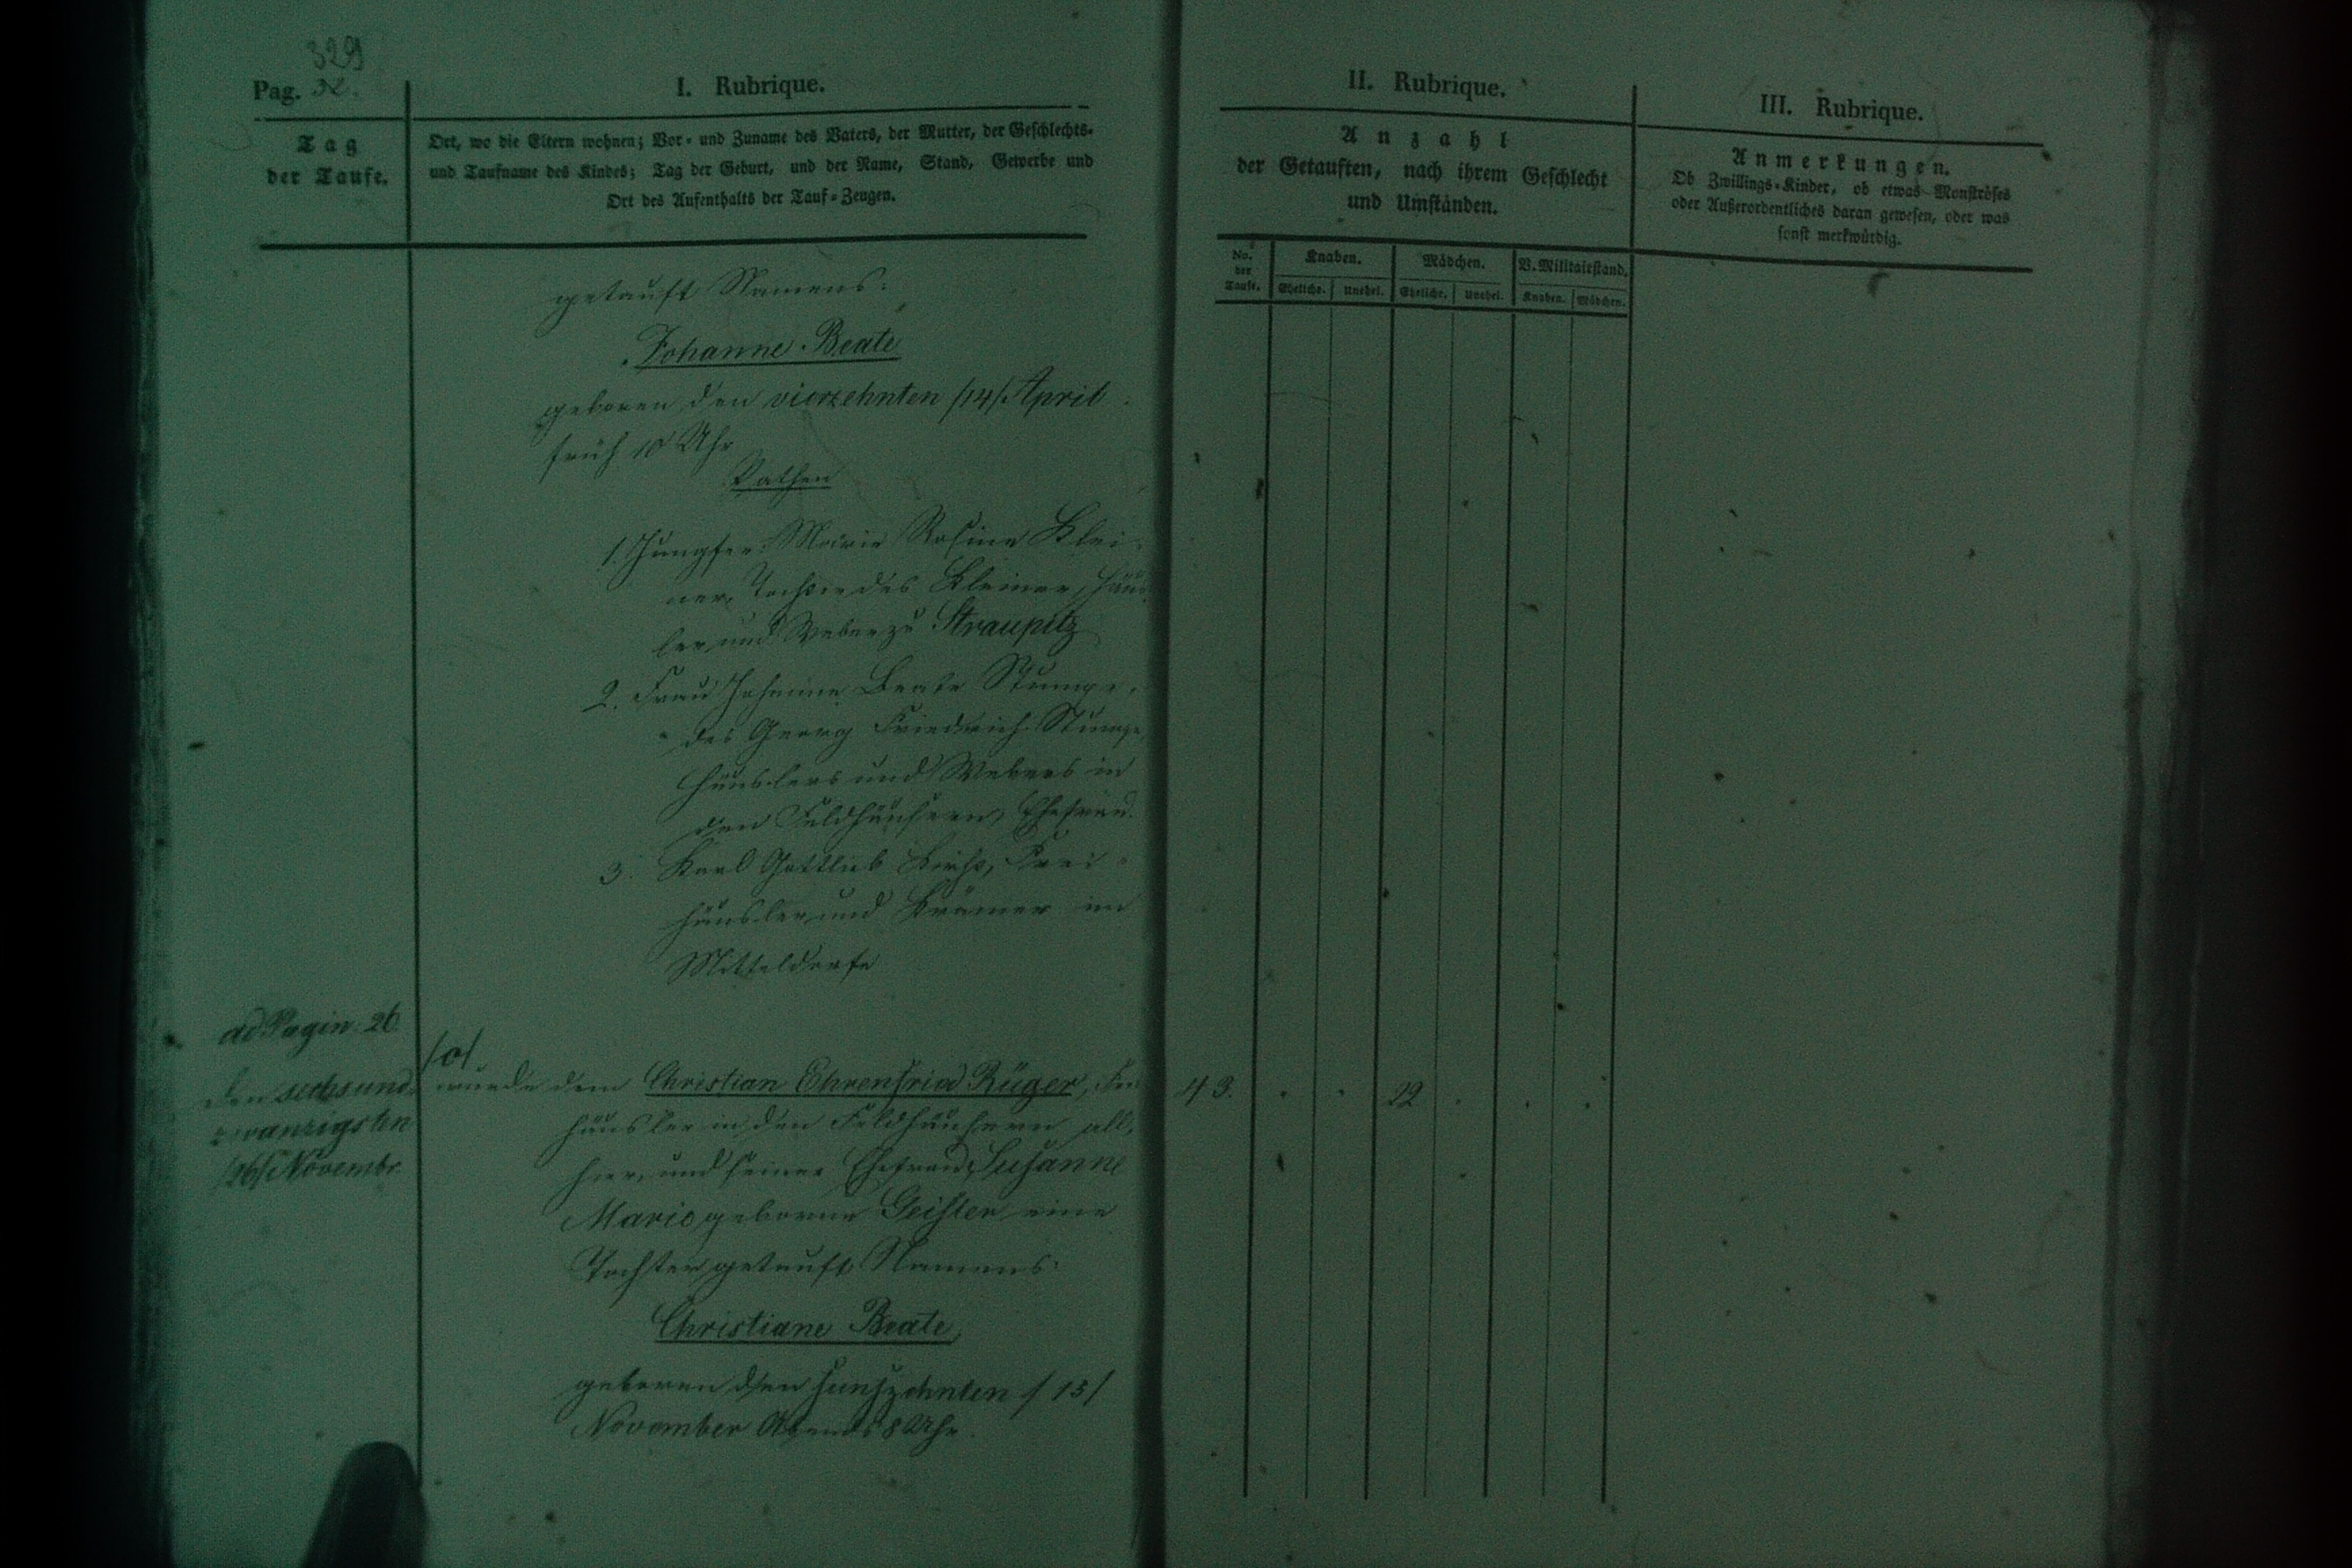 329
Pag. 32.
I. Rubrique.
Tag
der Taufe.
Ort, wo die Eltern wohnen; Vor- und Zuname des Vaters, der Mutter, der Geschlechts-
und Taufname des Kindes; Tag der Geburt, und der Name, Stand, Gewerbe und
Ort des Aufenthalts der Tauf-Zeugen.
getauft Namens:
Johanne Beate
geboren den vierzehnten /14/ April
früh 10 Uhr
Pathen
1. Jungfer Marie Rosine Klei-
ner, Tochter des Kleiner, Häus-
ler und Weber zu Straupitz
2. Frau Johanne Beate Stumpe,
des Georg Friedrich Stumpe
Häuslers und Webers in
den Feldhäusern, Ehefrau.
3. Karl Gottlieb Frei-
häusler und Krämer im
Mitteldorfe
ad Pagin. 26
/o/.
den sechsund-
zwanzigsten
/26/ Novembr.
wurde dem Christian Ehrenfried Rüger, Frei-
häusler in den Feldhäusern all-
hier, und seiner Ehefrau, Susanne
Marie geborne Geisler eine
Tochter getauft Namens:
Christiane Beate,
geboren den funfzehnten /15/
November Abends 8 Uhr.
II. Rubrique.
Anzahl
der Getauften, nach ihrem Geschlecht
und Umständen.
No. der Taufe. Knaben. Mädchen. V. Militairstand.
Eheliche. Unehel. Eheliche. Unehel. Knaben. Mädchen.
43. 22
III. Rubrique.
Anmerkungen.
Ob Zwillings-Kinder, ob etwas Monströses
oder Außerordentliches daran gewesen, oder was
sonst merkwürdig.